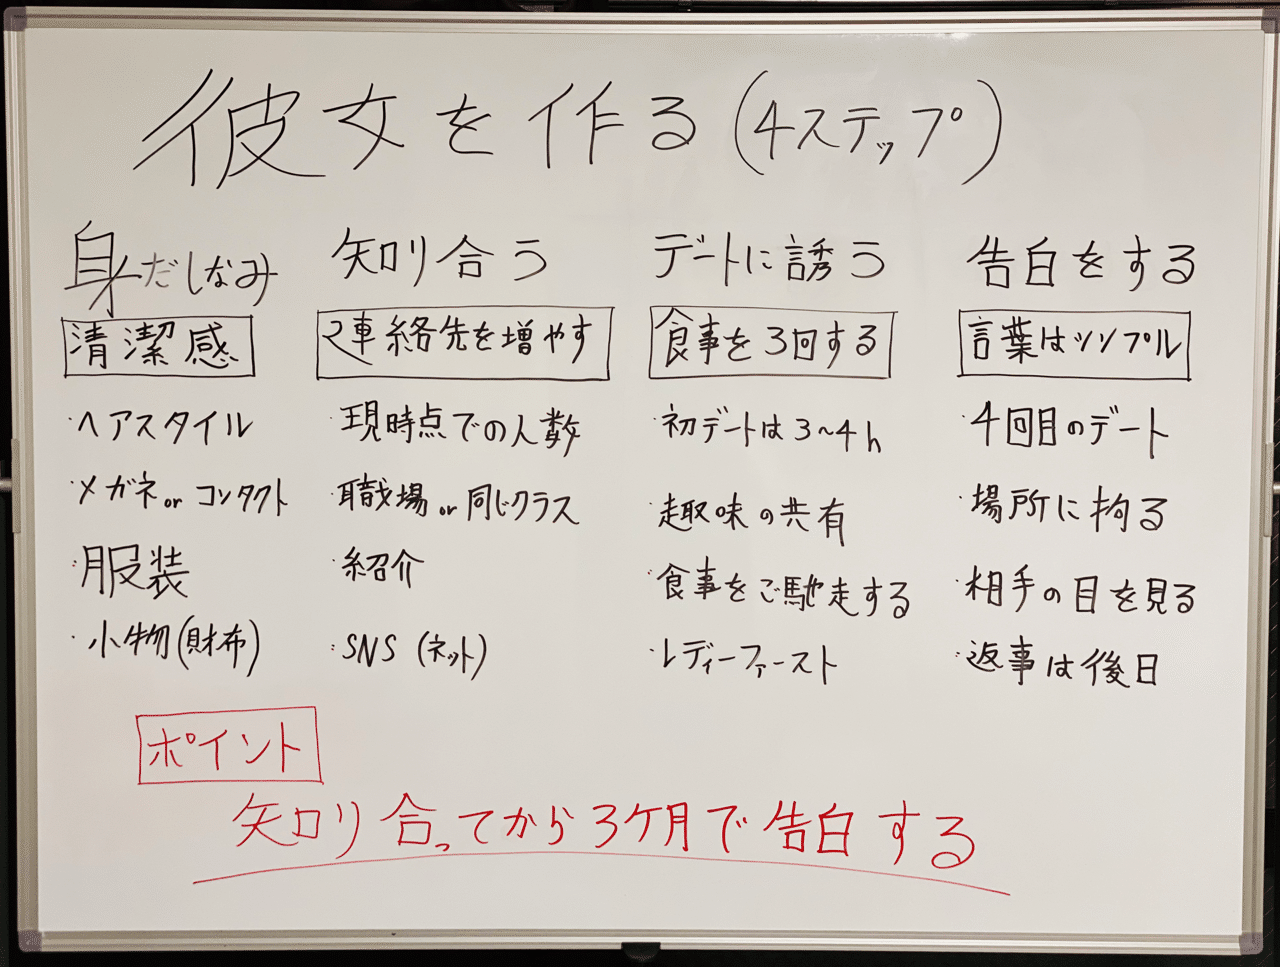 彼女を作る(4ステップ)
身だしなみ
清潔感
・ヘアスタイル
・メガネor コンタクト
・服装
・小物(財布)
知り合う
連絡先を増やす
・現時点での人数
・職場or同じクラス
・紹介
・SNS(ネット)
デートに誘う
食事を3回する
・初デートは3~4h
・趣味の共有
・食事をご馳走する
・レディーファースト
告白をする
言葉はシンプル
・4回目のデート
・場所に拘る
・相手の目を見る
・返事は後日
ポイント
知り合ってから3ケ月で告白する